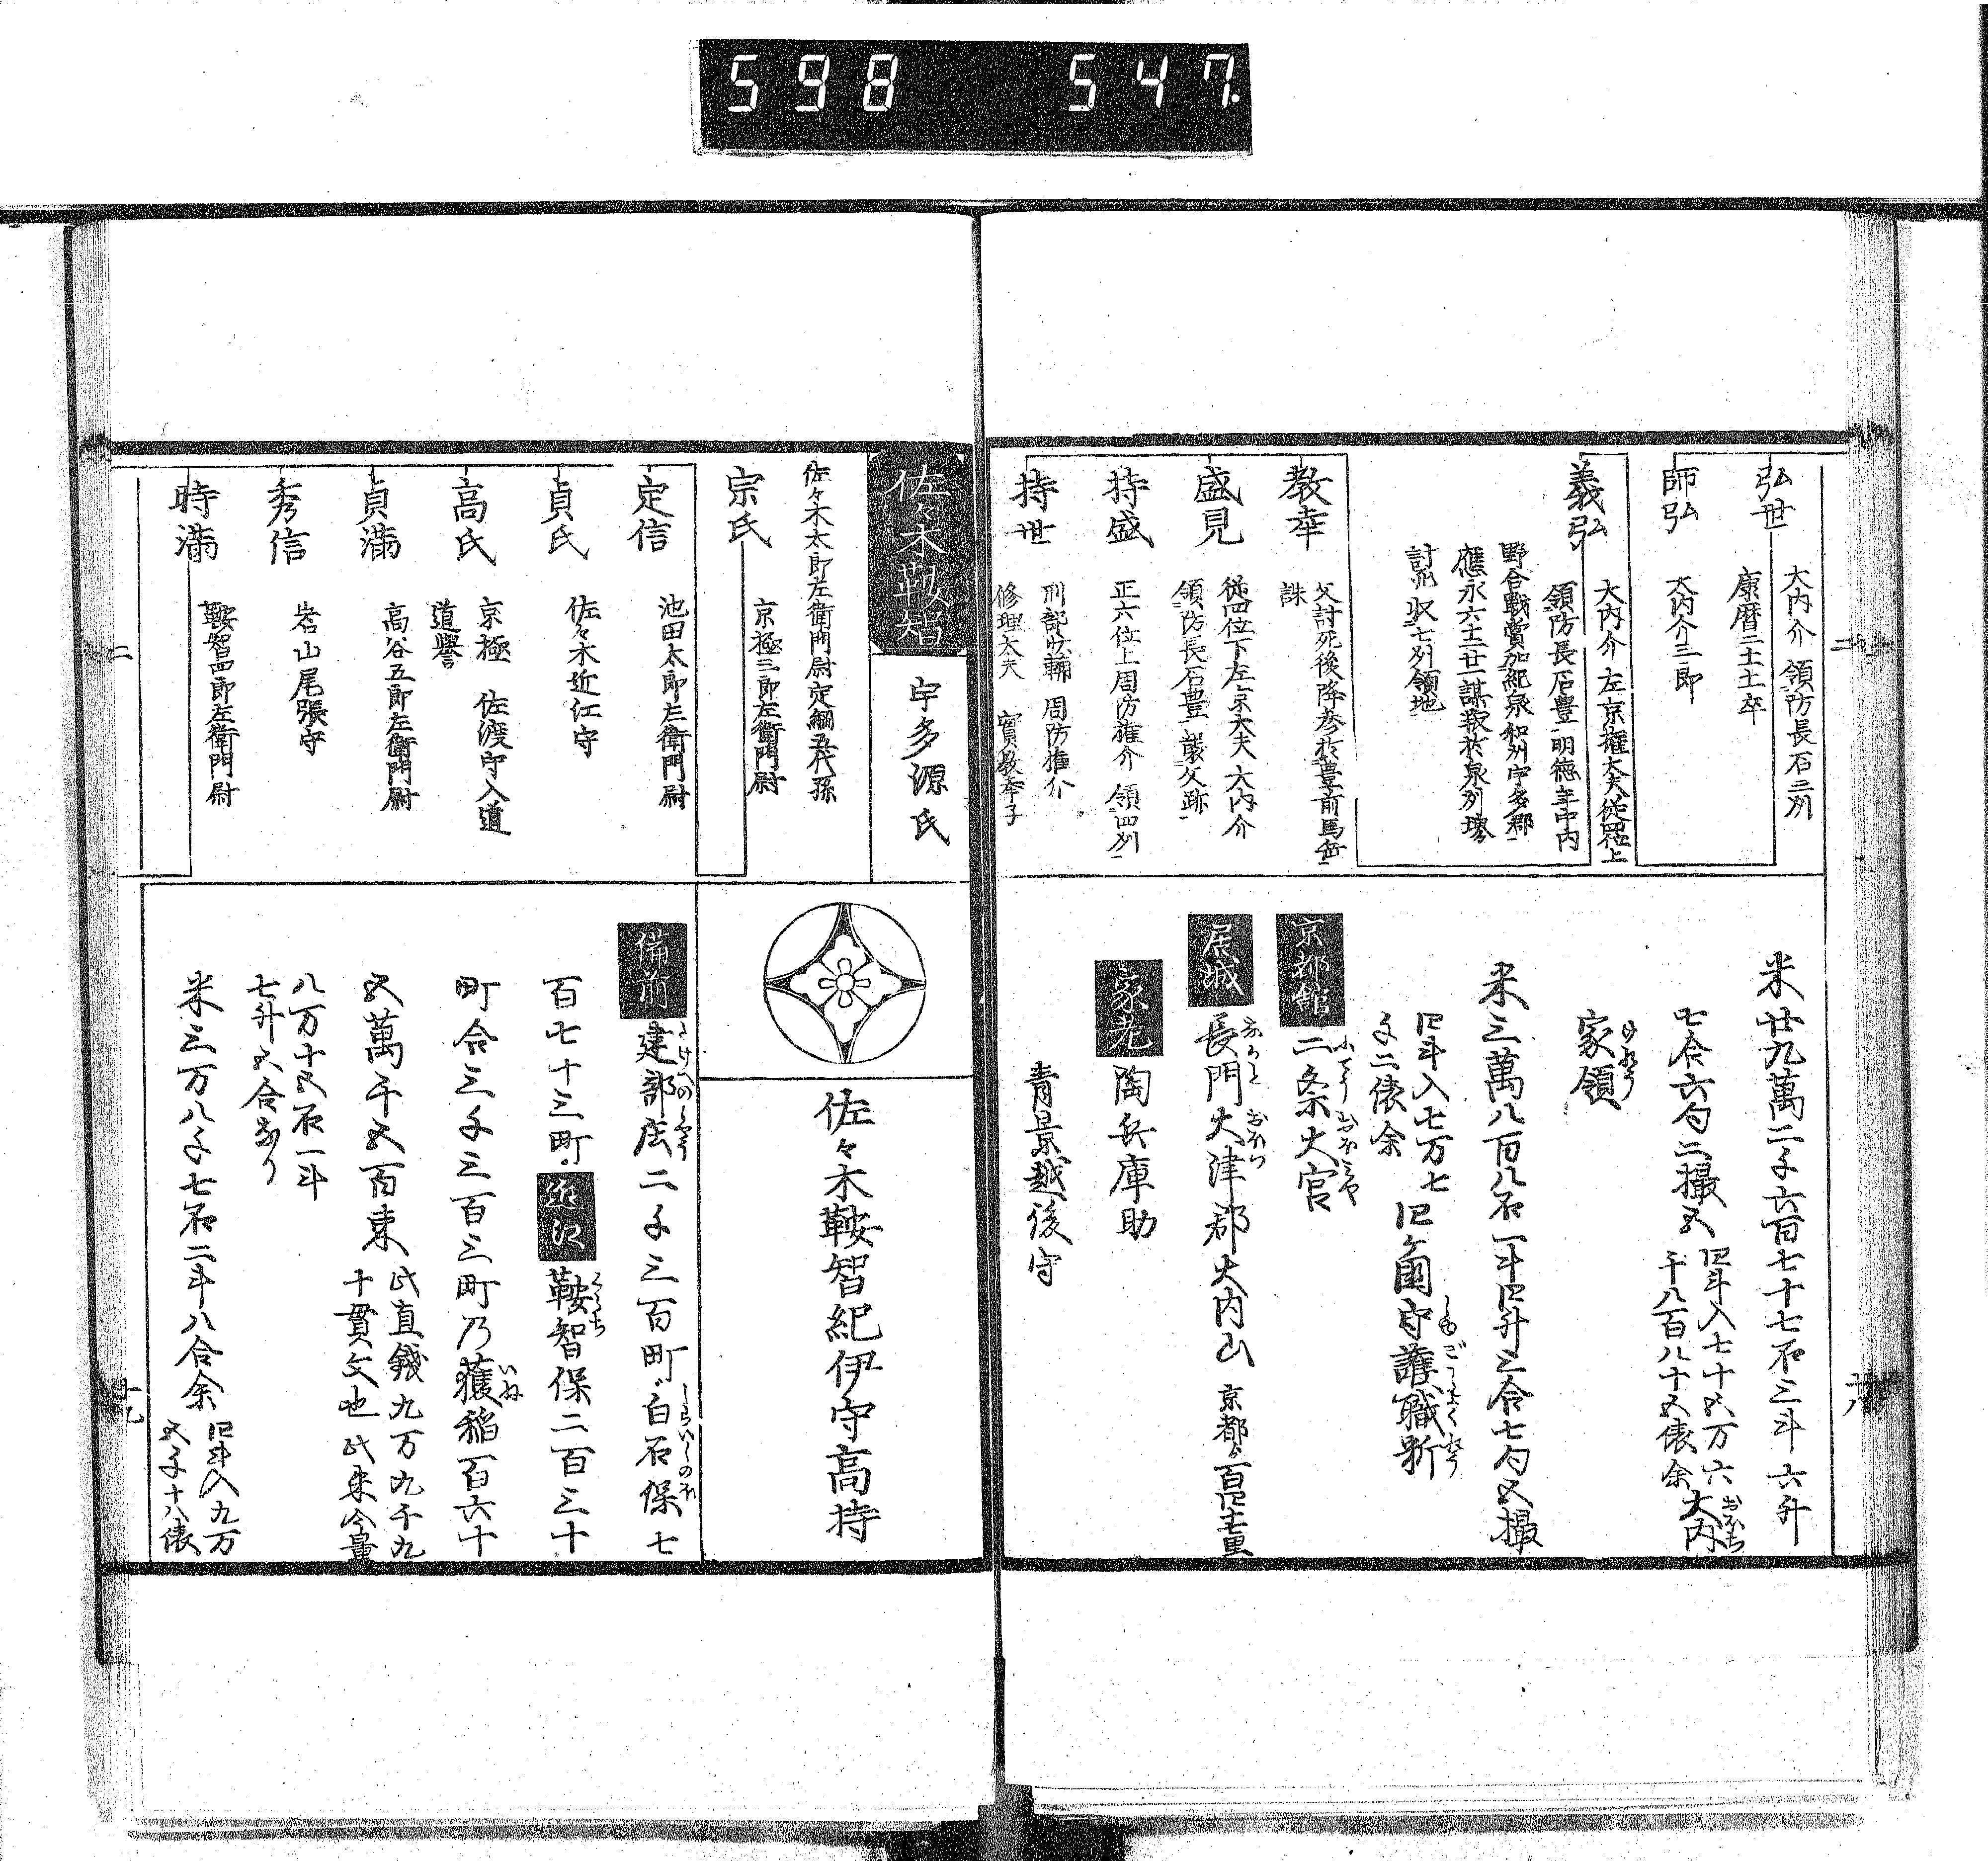 598 547.
弘世
大内介 領防長石三州
康暦二十十一卒
師弘
大内介三郎
義弘
大内介 左京権大夫従四位上
領防長石豊 明徳年中内
野合戦賞加紀泉和州宇多郡
應永六十二廿一謀叛於泉州堺
討死 収七州領地
教幸
父討死後降参於豊前馬岳
誅
盛見
従四位下左京大夫 大内介
領防長石豊 襲父跡
持盛
正六位上周防権介 領四州
持世
刑部少輔 周防権介
修理大夫 實教幸子
米廿九萬二千六百七十七石三斗六升
七合六勺二撮五
四斗入七十五万六
千八百八十五俵余
大内
家領
米三萬八百八石一斗四升三合七勺五撮
四斗入七万七
千二俵余
四ヶ國守護職料
京都館
二条大宮
居城
長門大津郡大内山
京都ヨリ
家老
陶兵庫助
青景越後守
廿八
佐々木鞍智
宇多源氏
佐々木太郎左衛門尉定綱五代孫
宗氏
京極三郎左衛門尉
定信
池田太郎左衛門尉
貞氏
佐々木近江守
高氏
京極 佐渡守入道
道譽
貞満
高谷五郎左衛門尉
秀信
岩山尾張守
時満
鞍智四郎左衛門尉
佐々木鞍智紀伊守高持
備前
建部庄二千三百町
白石保七
百七十三町
近江
鞍智保二百三十
町合三千三百三町乃穫稲百六十
五萬千五百束
此直錢九万九千九
十貫文也此米今量
八万十五石一斗
七升五合あり
米三万八千七石二斗八合余
四斗入九万
五千十八俵
十九